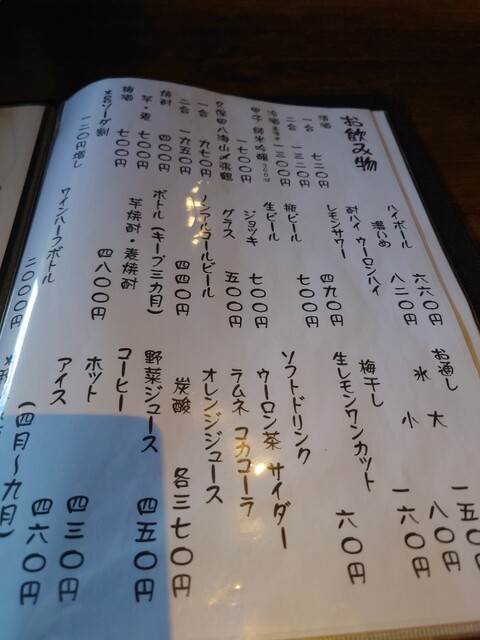 お飲み物
清酒
一合 七二〇円
二合 一三二〇円
冷酒 一三〇〇円
甲子 純米吟醸 一七〇〇円
久保田 八海山 〆張鶴
一合 九七〇円
二合 一九五〇円
焼酎 四〇〇円
芋・麦 七〇〇円
梅酒 七〇〇円
ソーダ割
一二〇円増し
ハイボール 六六〇円
濃いめ 八二〇円
酎ハイ ウーロンハイ
レモンサワー 四九〇円
瓶ビール 七〇〇円
生ビール
ジョッキ 七〇〇円
グラス 五〇〇円
ノンアルコールビール 四四〇円
ボトル(キープ三カ月)
芋焼酎・麦焼酎 四八〇〇円
ワインハーフボトル 二〇〇〇円
お通し 一五〇
氷 大 八〇円
小 一六〇円
梅干し
生レモンワンカット 六〇円
ソフトドリンク
ウーロン茶 サイダー
ラムネ コカコーラ
オレンジジュース
炭酸 各三七〇円
野菜ジュース 四五〇円
コーヒー
ホット 四三〇円
アイス 四六〇円
(四月〜九月)